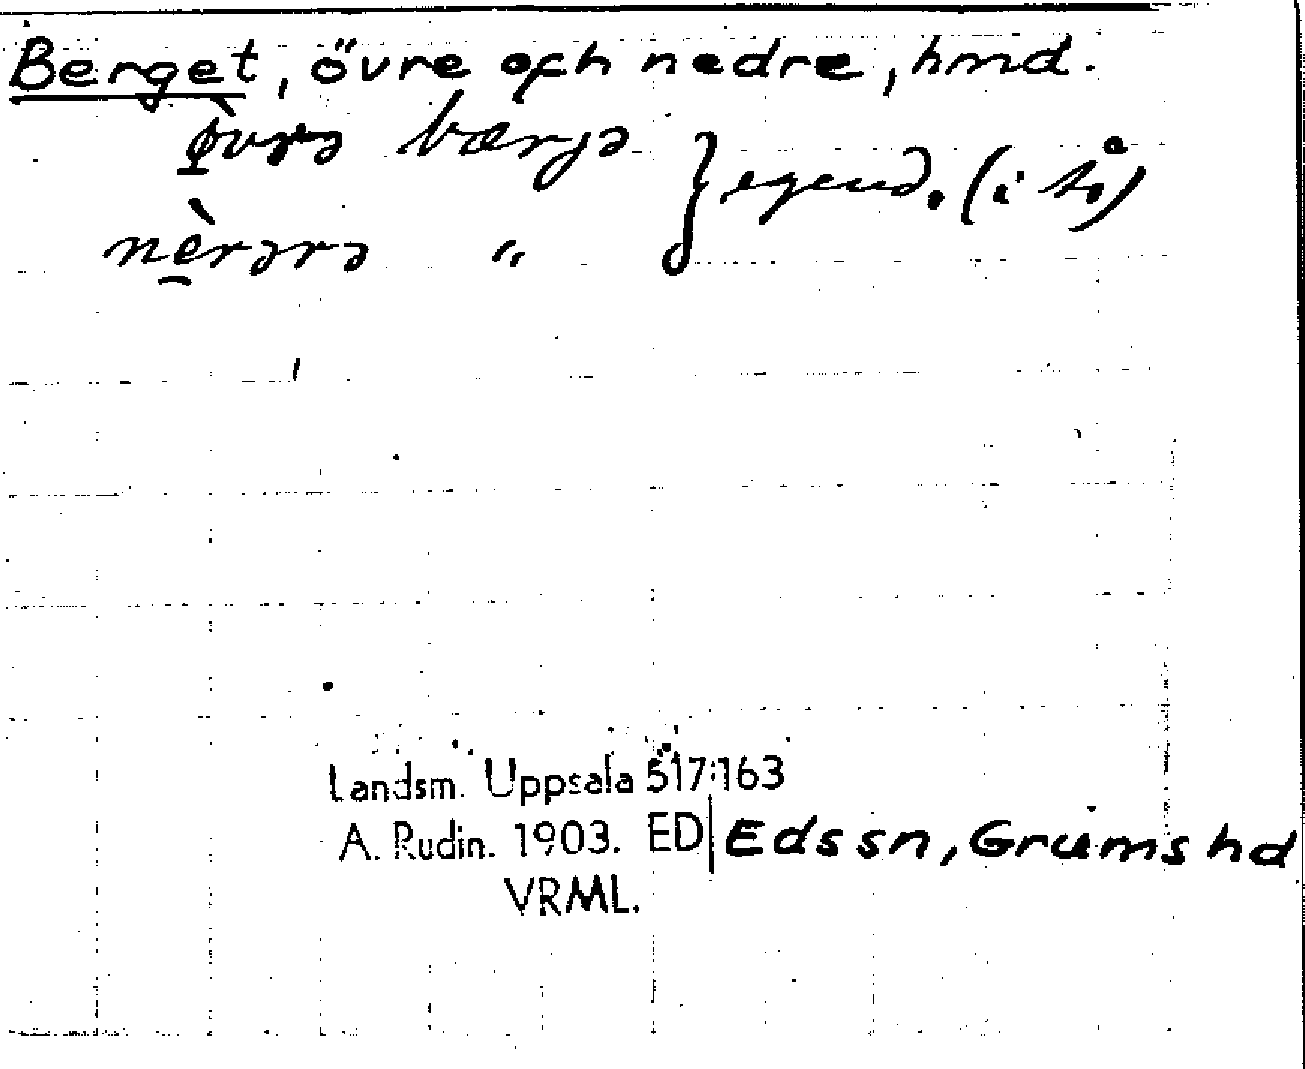 Berget, övre och nedre, hmd.
bærjə
nèrərə "
egend. (i
Landsm. Uppsala 517:163
A. Rudin. 1903. ED| Eds sn, Grums hd
VRML.